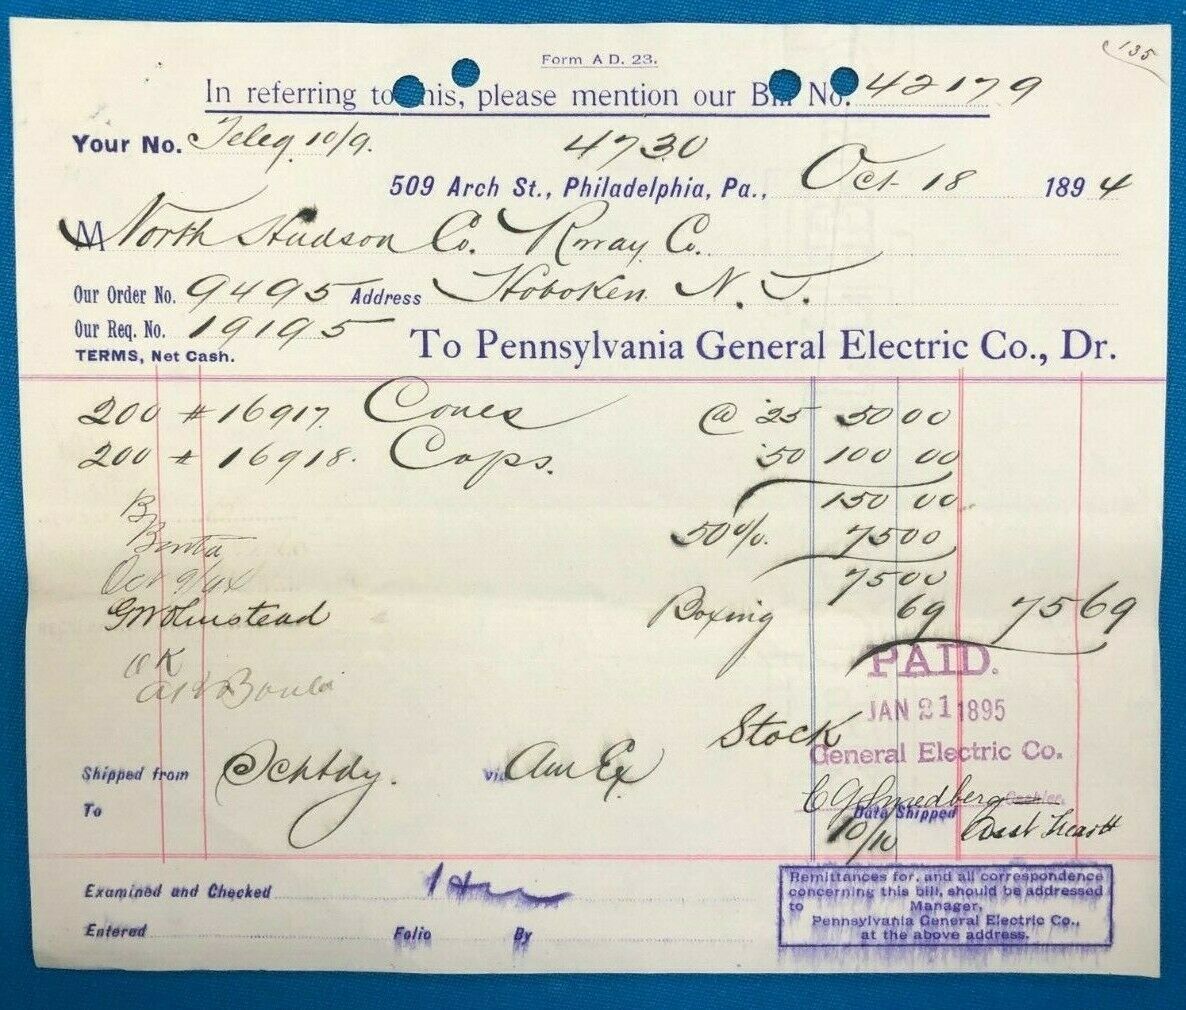 135
Form A D. 23.
In referring to this, please mention our Bill No. 42179
Your No. Teleg. 10/9. 4730
509 Arch St., Philadelphia, Pa., Oct 18 1894
M North Hudson Co. Rway Co.
Our Order No. 9495 Address Hoboken N. J.
Our Req. No. 19195
TERMS, Net Cash.
To Pennsylvania General Electric Co., Dr.
200 # 16917. Cones @ .25 50 00
200 # 16918. Caps. .50 100 00
150 00
50%. 75 00
75 00
Boxing 69 75 69
B
Oct 9/94
G W Olmstead
OK
PAID.
JAN 21 1895
General Electric Co.
Stock
Shipped from Schtdy. via Am Ex
C G Smedberg Cashier.
To
Date Shipped
10/10
Examined and Checked
Entered Folio By
Remittances for, and all correspondence
concerning this bill, should be addressed
to Manager,
Pennsylvania General Electric Co.,
at the above address.